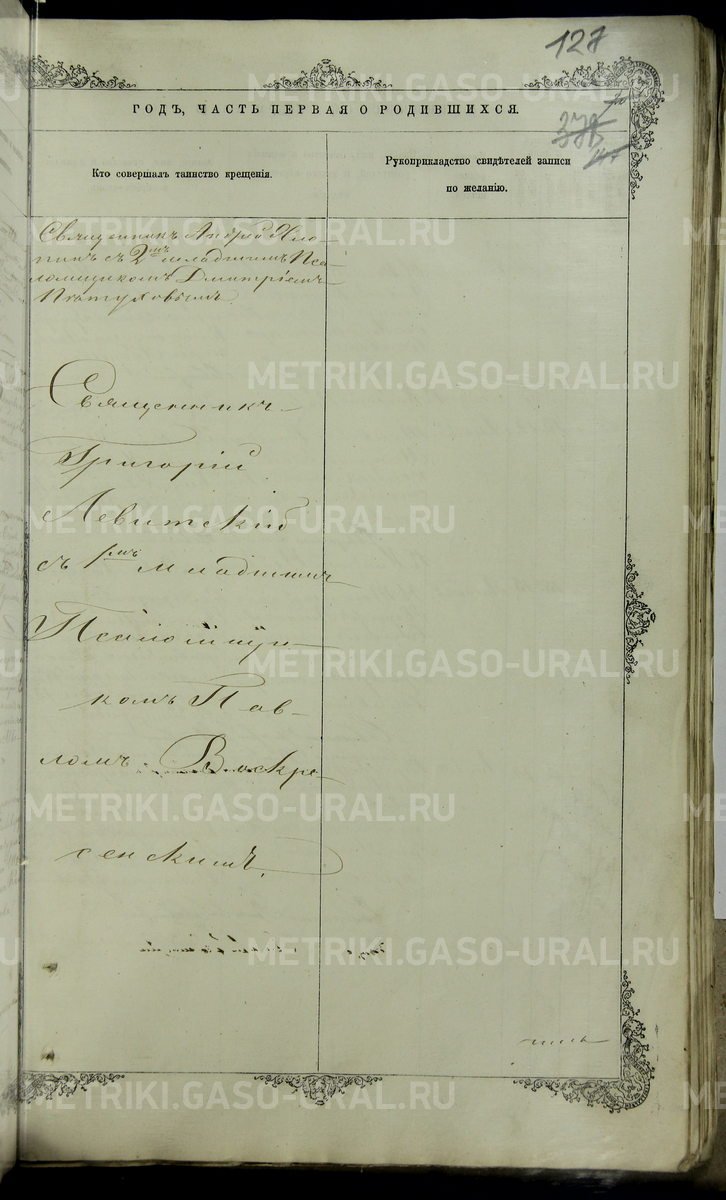 127
ГОДЪ, ЧАСТЬ ПЕРВАЯ О РОДИВШИХСЯ.
378
Кто совершалъ таинство крещенія.
Рукоприкладство свидѣтелей записи
по желанію.
Священникъ Андрей
съ 2мъ младшимъ Пса-
ломщикомъ Димитріемъ
Пѣтуховымъ.
Священникъ
Григорій
Левитскій
съ 1мъ младшимъ
Псаломщи-
комъ Пав-
ломъ Воскре-
сенскимъ.
METRIKI.GASO-URAL.RU